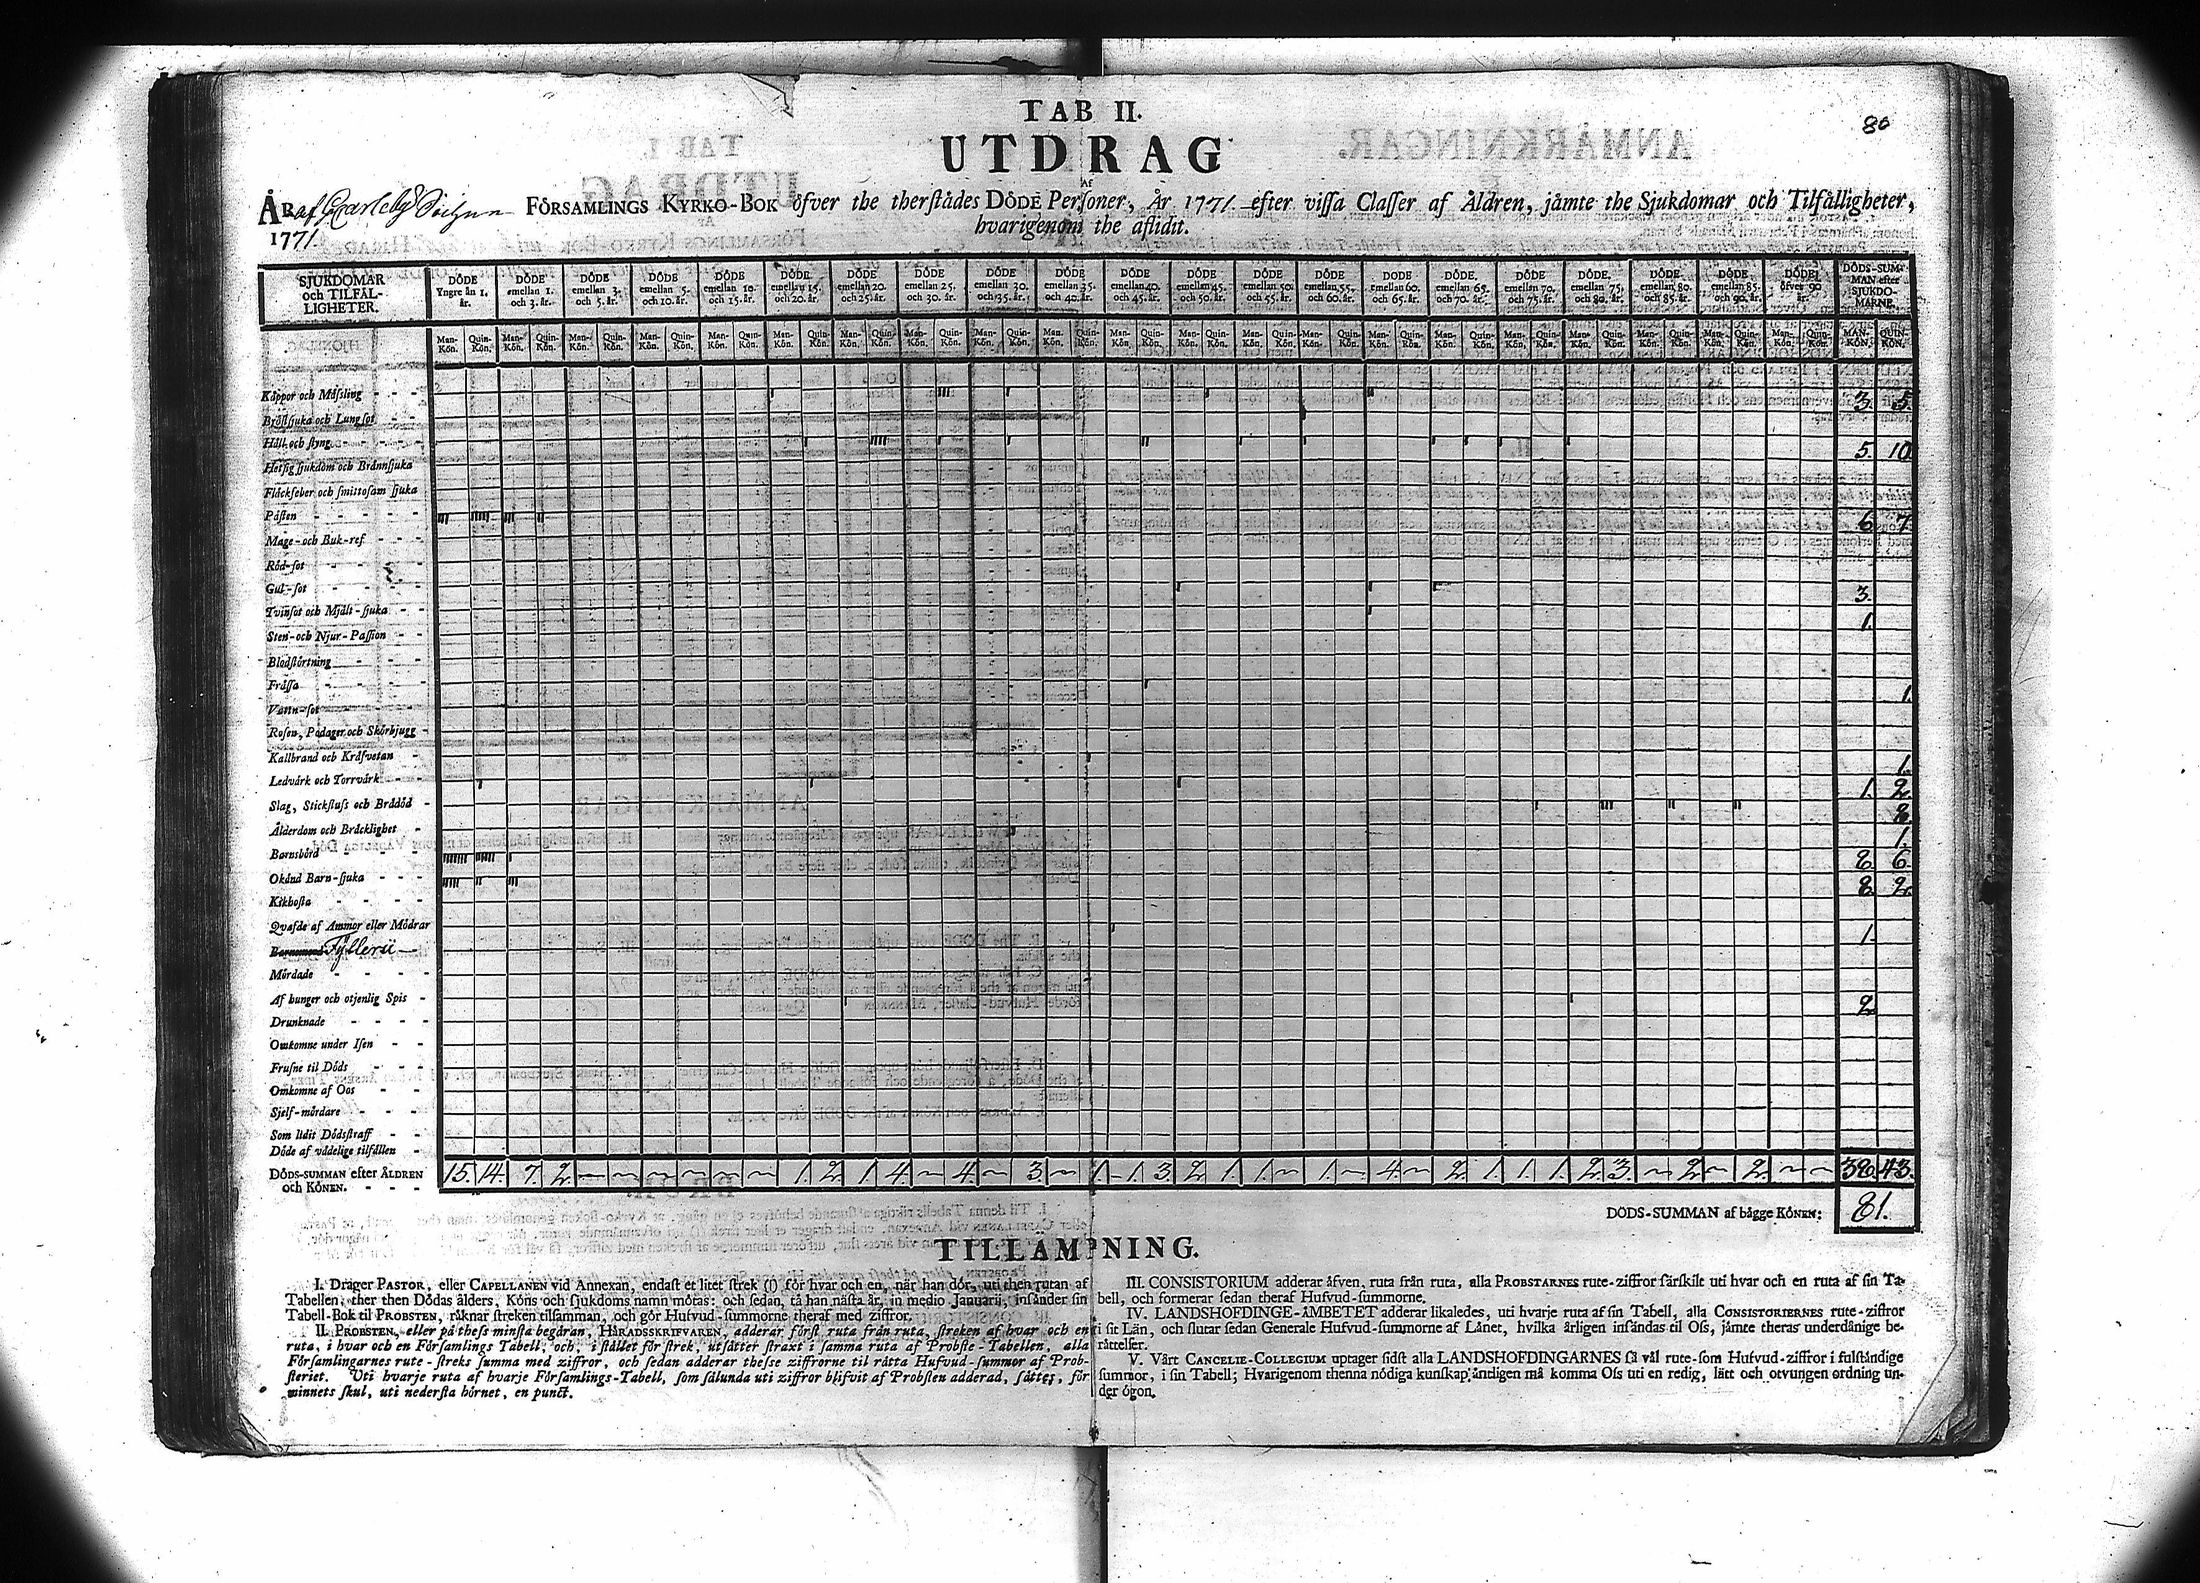 TAB II.
80
UTDRAG
AF
ÅR af Carleby Sochn FÖRSAMLINGS KYRKO-BOK öfver the therstådes DÖDE Personer, År 1771 efter vissa Classer af Åldren, jämte the Sjukdomar och Tilfälligheter,
1771. hvarigenom the aflidit.
SJUKDOMAR och TILFÄL-LIGHETER. DÖDE Yngre än 1. år. DÖDE emellan 1. och 3. år. DÖDE emellan 3. och 5. år. DÖDE emellan 5. och 10. år. DÖDE emellan 10. och 15. år. DÖDE emellan 15. och 20. år. DÖDE emellan 20. och 25. år. DÖDE emellan 25. och 30. år. DÖDE emellan 30. och 35. år. DÖDE emellan 35. och 40. år. DÖDE emellan 40. och 45. år. DÖDE emellan 45. och 50. år. DÖDE emellan 50. och 55. år. DÖDE emellan 55. och 60. år. DÖDE emellan 60. och 65. år. DÖDE emellan 65. och 70. år. DÖDE emellan 70. och 75. år. DÖDE emellan 75. och 80. år. DÖDE emellan 80. och 85. år. DÖDE emellan 85. och 90. år. DÖDE öfver 90 år. DÖDS-SUM-MAN efter SJUKDO-MARNE.
Man-Kön. Quin-Kön. Man-Kön. Quin-Kön. Man-Kön. Quin-Kön. Man-Kön. Quin-Kön. Man-Kön. Quin-Kön. Man-Kön. Quin-Kön. Man-Kön. Quin-Kön. Man-Kön. Quin-Kön. Man-Kön. Quin-Kön. Man-Kön. Quin-Kön. Man-Kön. Quin-Kön. Man-Kön. Quin-Kön. Man-Kön. Quin-Kön. Man-Kön. Quin-Kön. Man-Kön. Quin-Kön. Man-Kön. Quin-Kön. Man-Kön. Quin-Kön. Man-Kön. Quin-Kön. Man-Kön. Quin-Kön. Man-Kön. Quin-Kön. Man-Kön. Quin-Kön. MAN-KÖN. QUIN-KÖN.
Koppor och Mässling - - - 3. 5.
Bröstsjuka och Lungsot
Håll och styng - - - - 5. 10
Hetsig sjukdom och Brännsjuka
Fläckfeber och smittosam sjuka
Påsten - - - - - 6. 7.
Mage- och Buk-ref - - -
Röd-sot - - - -
Gul-sot - - - - 3.
Tvinsot och Mjält-sjuka - - 1.
Sten- och Njur-Passion - -
Blodstörtning - - -
Frässa - - - - - 1.
Vattu-sot - - - -
Rosen, Podager och Skörbjugg -
Kallbrand och Kräfvetan - 1.
Ledvärk och Torrvärk - - 1. 2.
Slag, Stickfluss och Brådöd - 8.
Ålderdom och Bräcklighet - 1.
Barnsbörd - - - - 8. 6.
Okänd Barn-sjuka - - - 8. 2.
Kikhosta - - - -
Qvafde af Ammor eller Mödrar 1.
Fylleri
Mördade - - - -
Af hunger och otjenlig Spis - 2
Drunknade - - - -
Omkomne under Isen - -
Frusne til Döds - - -
Omkomne af Oos - -
Sjelf-mördare - - -
Som lidit Dödsstraff - -
Döde af vådelige tilfällen -
DÖDS-SUMMAN efter ÅLDREN och KÖNEN. - - - 15. 14. 7. 2. ~ ~ ~ ~ ~ ~ 1. 2. 1. 4. ~ 4. ~ 3. ~ 1. 1. 3. 2. 1. 1. ~ 1. ~ 4. ~ 2. 1. 1. 1. 2. 3. ~ 2. ~ 2. ~ ~ 38. 43.
DÖDS-SUMMAN af bägge KÖNEN: 81.
TILLÄMPNING.
I. Drager PASTOR, eller CAPELLANEN vid Annexan, endast et litet strek (ı) för hvar och en, när han dör, uti then rutan af
Tabellen, ther then Dödas ålders, Köns och sjukdoms namn mötas: och sedan, tå han nästa år, in medio Januarii, insänder sin
Tabell-Bok til PROBSTEN, räknar streken tilsamman, och gör Hufvud-summorne theraf med ziffror.
II. PROBSTEN, eller på thess minsta begäran, HÄRADSSKRIFVAREN, adderar först ruta från ruta, streken af hvar och en
ruta, i hvar och en Församlings Tabell, och, i stället för strek, utsätter straxt i samma ruta af Probste-Tabellen, alla
Församlingarnes rute-streks summa med ziffror, och sedan adderar thesse ziffrorne til rätta Hufvud-summor af Prob-
steriet. Uti hvarje ruta af hvarje Församlings-Tabell, som sålunda uti ziffror blifvit af Probsten adderad, sättes, för
minnets skul, uti nedersta hörnet, en punct.
III. CONSISTORIUM adderar äfven, ruta från ruta, alla PROBSTARNES rute-ziffror särskilt uti hvar och en ruta af sin Ta-
bell, och formerar sedan theraf Hufvud-summorne.
IV. LANDSHÖFDINGE-ÄMBETET adderar likaledes, uti hvarje ruta af sin Tabell, alla CONSISTORIERNES rute-ziffror
i sit Län, och slutar sedan Generale Hufvud-summorne af Länet, hvilka årligen insändas til Oss, jämte theras underdånige be-
rättelser.
V. Vårt CANCELIE-COLLEGIUM uptager sidst alla LANDSHÖFDINGARNES så väl rute-som Hufvud-ziffror i fulständige
summor, i sin Tabell; Hvarigenom thenna nödiga kunskap änteligen må komma Oss uti en redig, lätt och otvungen ordning un-
der ögon.